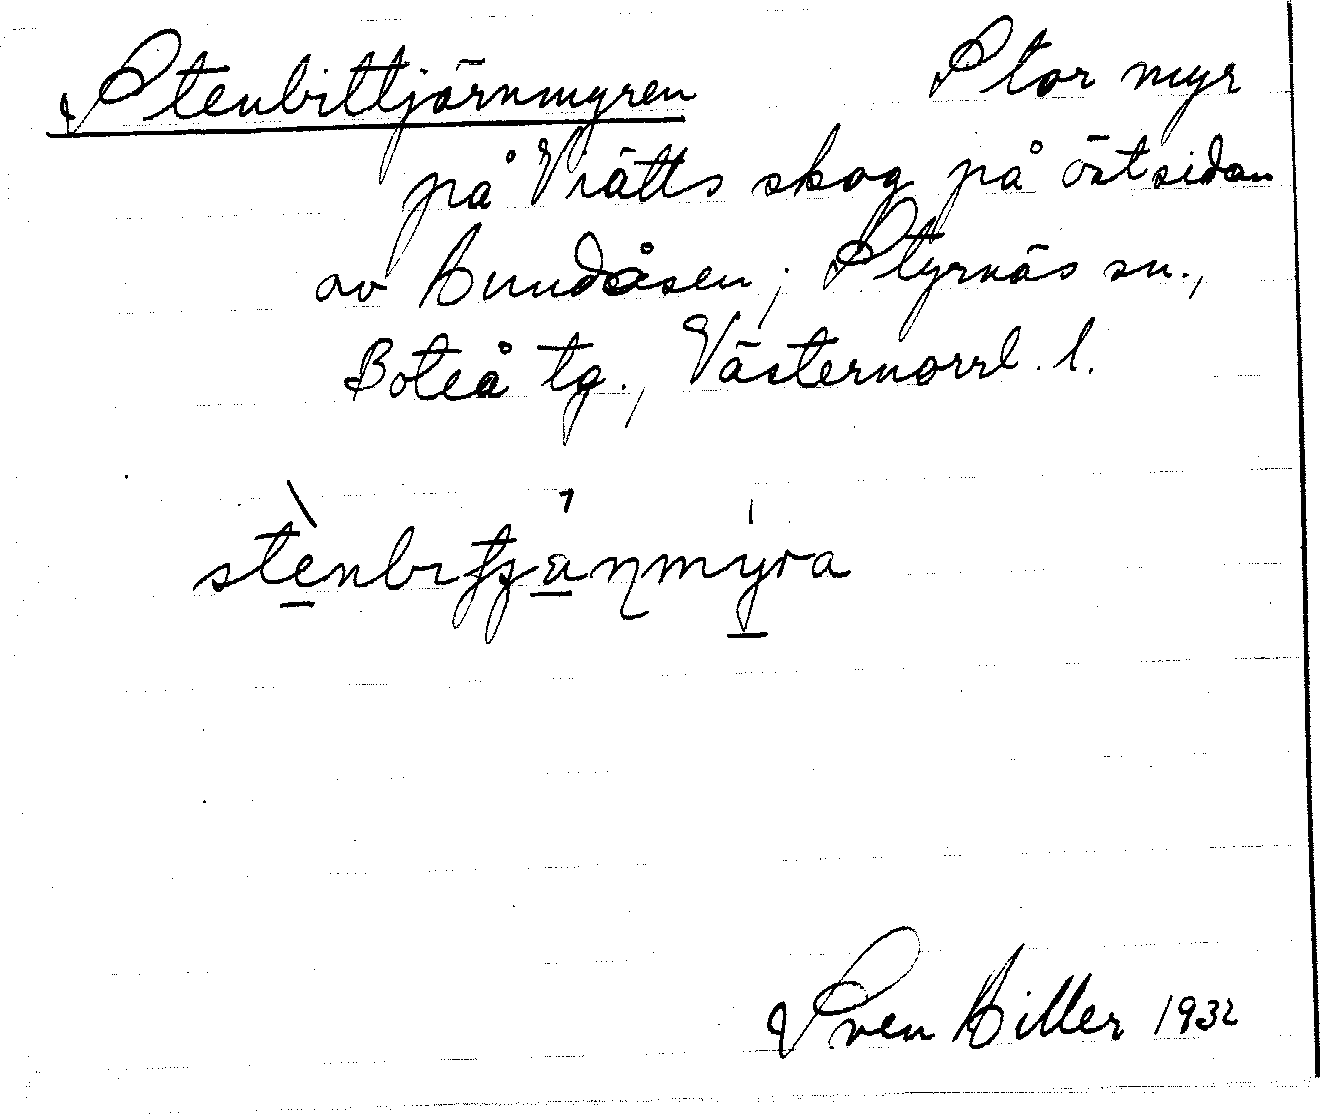 Stenbittjärnmyren Stor myr
på Viätts skog på östsidan
av Hundåsen; Styrnäs sn.,
Boteå tg., Västernorrl. l.
Sven Hiller 1932